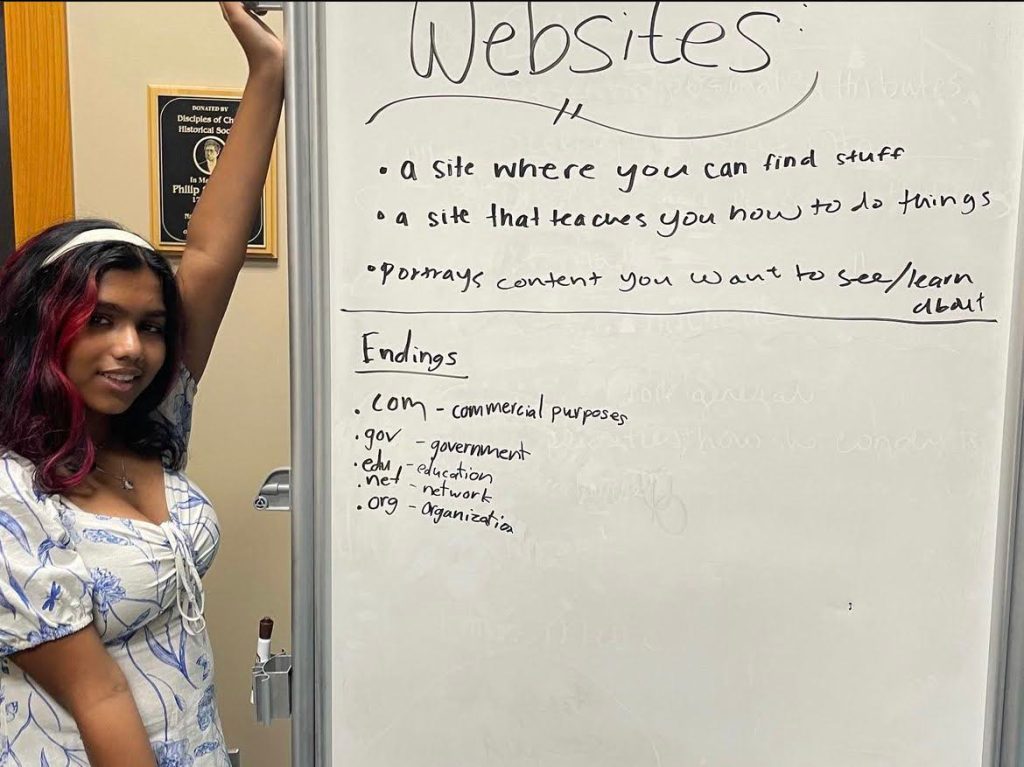 Websites
• a site where you can find stuff
• a site that teaches you how to do things
• portrays content you want to see/learn
about
Endings
.com - commercial purposes
.gov - government
.edu - education
.net - network
.org - organization
DONATED BY
Disciples of
Historical
Philip